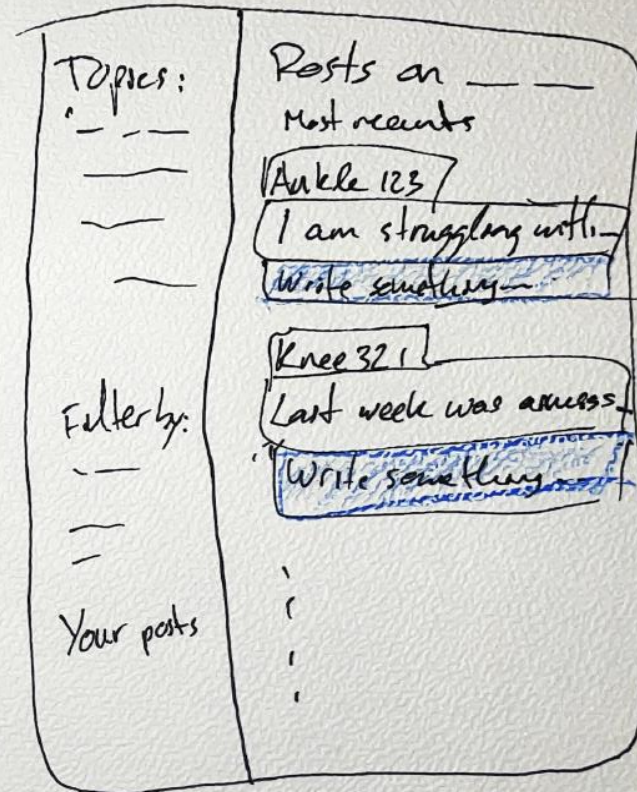 Topics:
Filter by:
Your posts
Posts on
Most recents
Ankle 123
I am struggling with
Write something
Knee 321
Last week was
Write something